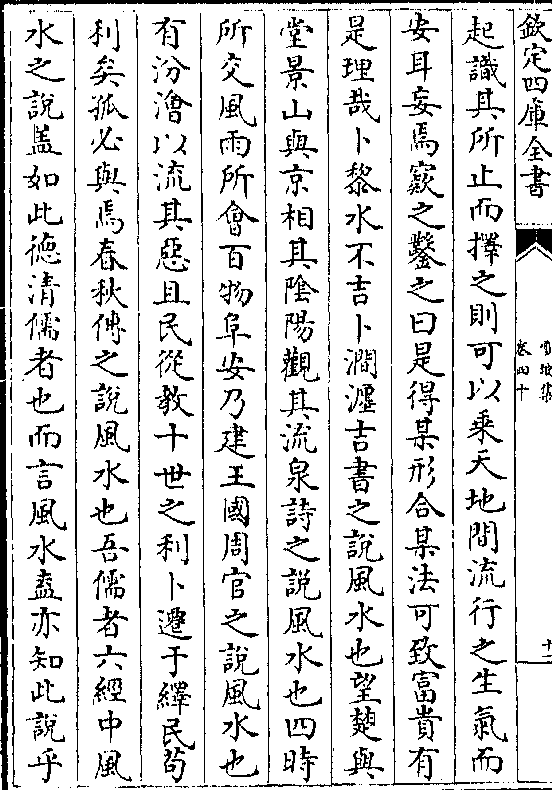 欽定四庫全書
卷四十
十一
起識其所止而擇之則可以乘天地間流行之生氣而
安耳妄焉竅之鑿之曰是得某形合某法可致富貴有
是理哉卜黎水不吉卜澗瀍吉書之說風水也望楚與
堂景山與京相其陰陽觀其流泉詩之說風水也四時
所交風雨所會百物阜安乃建王國周官之說風水也
有汾澮以流其惡且民從教十世之利卜遷于繹民苟
利矣孤必與焉春秋傳之說風水也吾儒者六經中風
水之說盖如此德清儒者也而言風水盍亦知此說乎